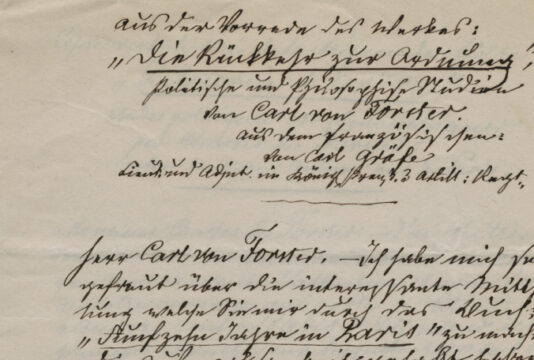 aus der Vorrede des Werkes:
„Die Rückkehr zur Ordnung",
Politische und Philosophische Studien
von Carl von Forster.
aus dem Französischen:
von Carl Gräfe
Lieut. und Adjut. im Königl. Preuß. 3 Artill: Regt.
Herr Carl von Forster. – Ich habe mich se
gefreut über die interessante Mitt
lung welche Sie mir durch das Buch:
„Funfzehn Jahre in Paris" zu mach